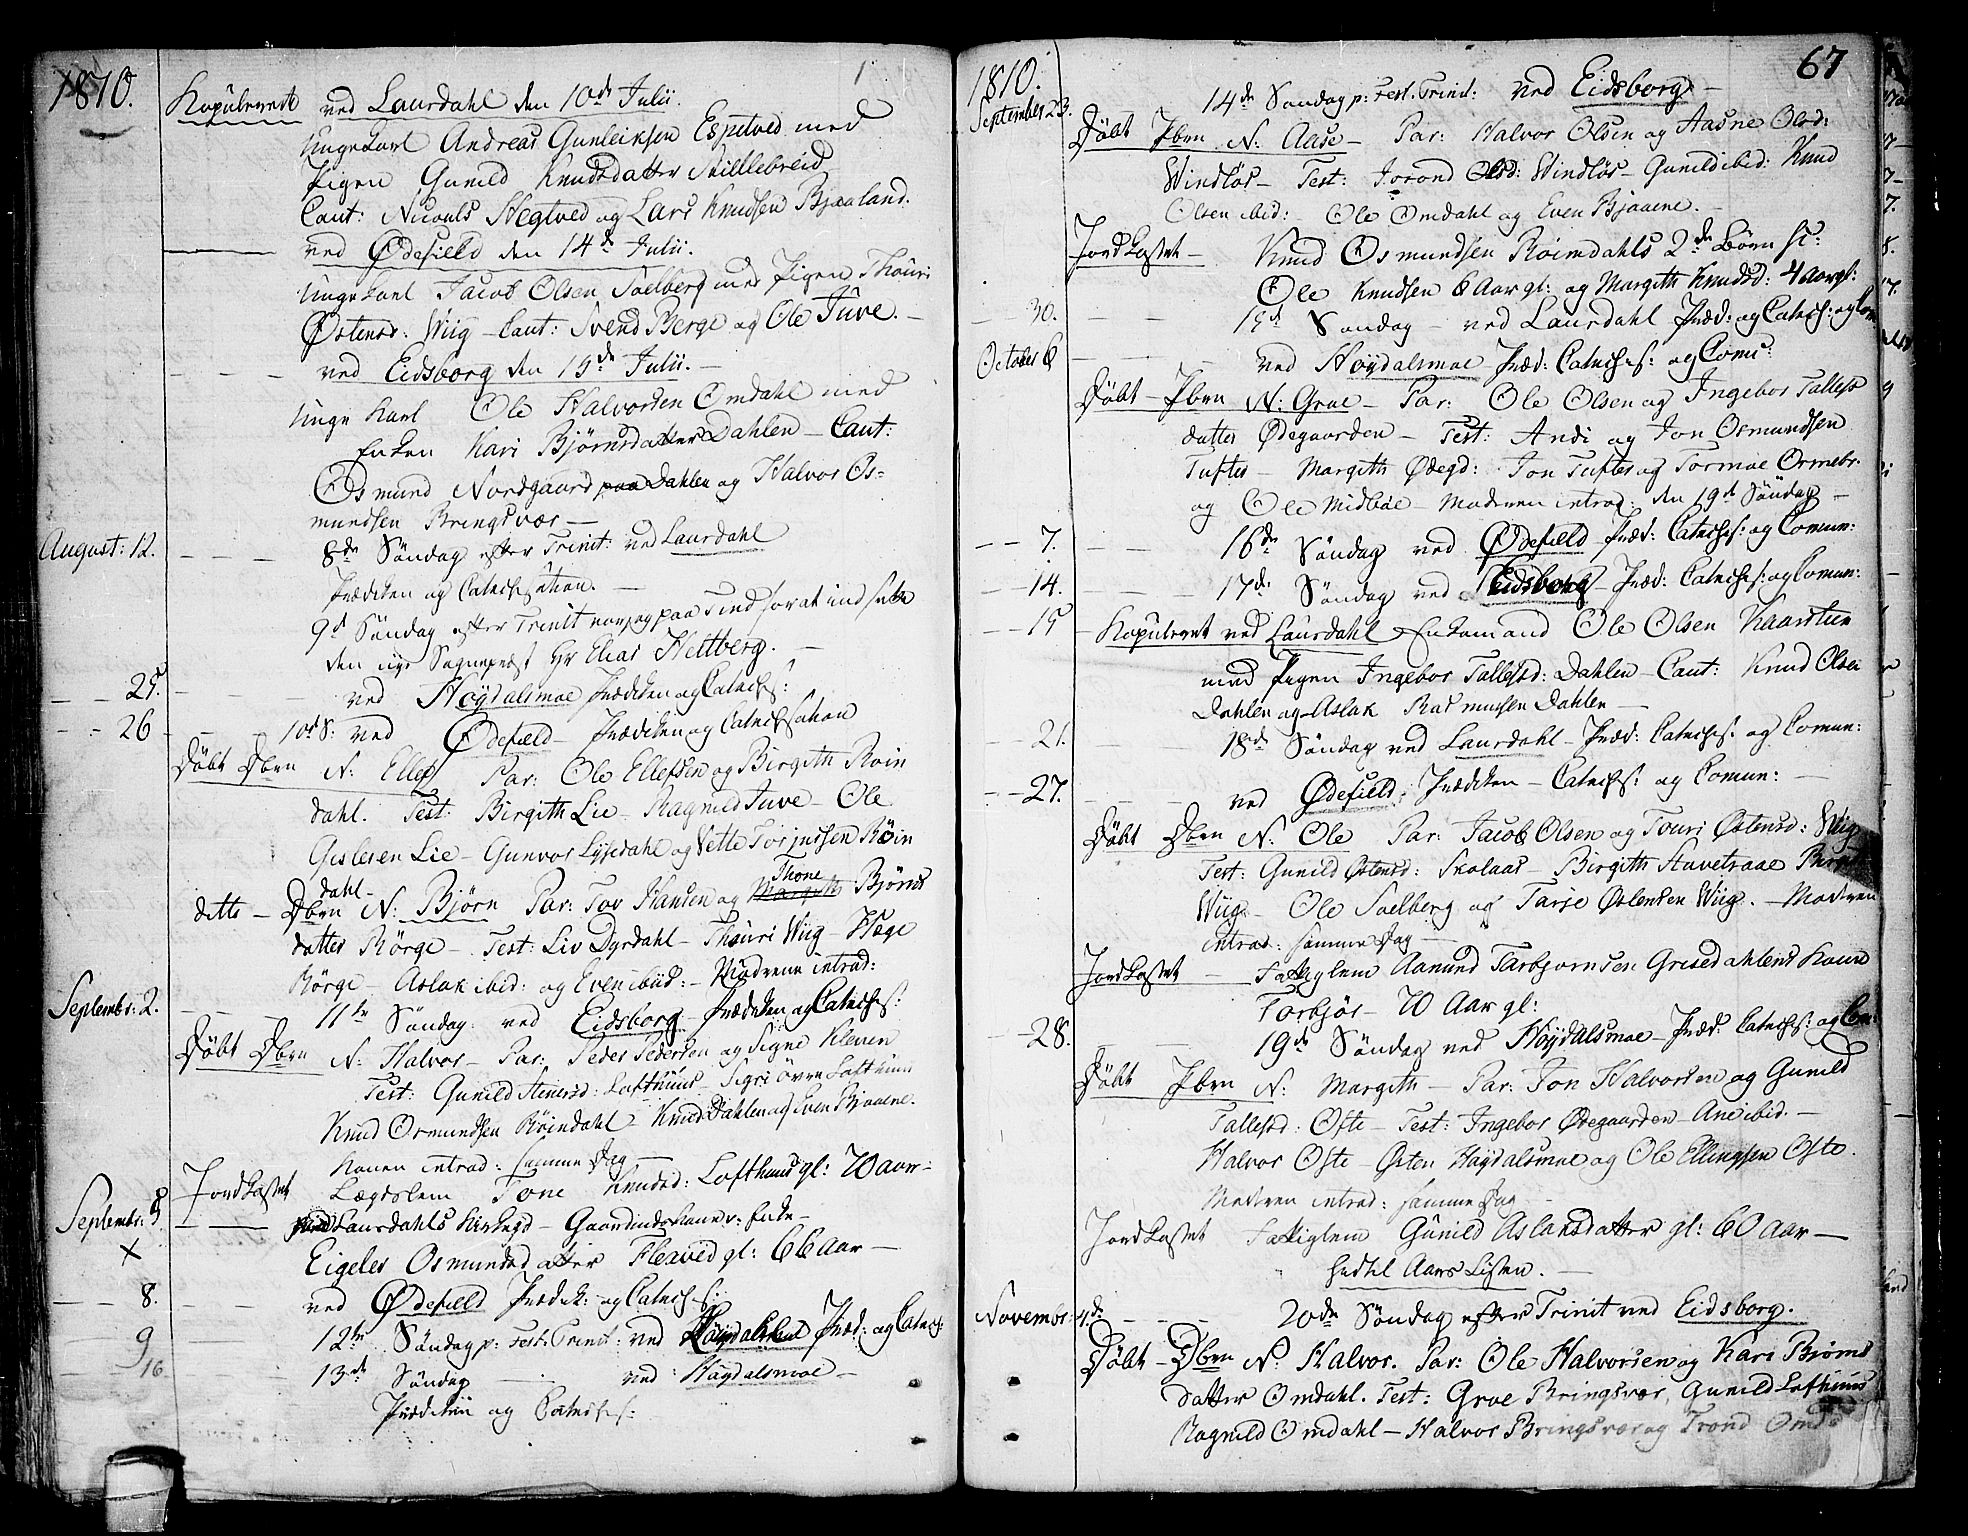 1810.
Kopulerede ved Laurdahl den 10de Julii.
Ungekarl Andreas Gunleiksen Espetved med
Pigen Gunild Knudsdatter Skillebreid
Caut: Nicouls Hegtved og Lars Knudsen Bjaaland.
ved Ødefield den 14de Julii.
Ungekarl Jacob Olsen Soelberg med Pigen Thouri
Østensd: Wiig — Caut: Svend Berge og Ole Juve. —
ved Eidsborg den 15de Julii. —
Unge Karl Ole Halvorsen Omdahl med
Enken Kari Bjørnsdatter Dahlen — Caut:
Osmund Nordgaard paa Dahlen og Halvor Os-
mundsen Bringsvær —
August: 12. 8de Søndag efter Trinit: ved Laurdahl
Prædiken og Catechisation. —
9d Søndag efter Trinit var jeg paa Tind for at indsætte
den nye Sognepræst Hr Elias Hettberg. —
25. ved Høydalsmoe Prædiken og Catechis:
26 10d S: ved Ødefield — Prædiken og Catechisation
Døbt Dbrn N: Ellef Par: Ole Ellefsen og Birgith Roin
dahl. Test: Birgith Lie — Ragnild Juve — Ole
Gislesen Lie — Gunvor Lysedahl og Vetle Torjussen Røin
dahl —
ditto — Dbrn N: Bjørn Par: Tov Hansen og Margith Thone Bjørns
datter Rørge — Test: Liv Dyrdahl — Thouri Wiig — Hæge
Rørge — Aslak ibid: og Even ibid: — Mødrene introd:
Septembr: 2. 11te Søndag ved Eidsborg — Prædiken og Catechis:
Døbt Dbrn N: Halvor — Par: Peder Pedersen og Signe Kleven
Test: Gunild Steinsd: Lofthuus — Sigri øvre Lofthuus
Knud Osmundsen Røindahl — Knud Dahlen og Even Bjaaene.
Konen introd: samme Dag —
Jordkastet Lægdslem Tone Knudsd: Lofthuus gl: 70 aar —
Septembr: 8. ved Laurdahls Kirkegd — Gaardmandskone v: Enke —
X Eigeler Osmundsdatter Flexvid gl: 66 Aar —
8. ved Ødefield Prædik: og Catechis:
9 12te Søndag p: Fest: Trinit: ved Præd: og Catech:
16 13de Søndag — ved Høydalsmoe —
Prædiken og Catechis:
67
1810.
September 23. 14de Søndag p: Fest: Trinit: ved Eidsborg —
Døbt Pbrn N: Aase — Par: Halvor Olsen og Aasne Olsd:
Windløs — Test: Jorond Olsd: Windløs — Gunild ibid: Knud
Olsen ibid: — Ole Omdahl og Even Bjaaene. —
Jordkastet — Knud Osmundsen Roimdahls 2de Børn sc:
Ole Knudsen 6 Aar gl: og Margith Knudsd: 4 aar gl:
— 30. 15d Søndag — ved Laurdahl Præd: og Catech: og Com
October 6 ved Høydalsmoe Præd: Catechis: og Comu:
Døbt — Pbrn N: Groe — Par: Ole Olsen og Ingebor Tallefs
datter Ødegaarden — Test: Andi og Jon Osmundsen
Tufter — Margith Ødegd: Jon Tufter og Tormoe Ormebr.
og Ole Midbøe — Moderen introd: den 19d Søndag —
— 7. 16de Søndag ved Ødefield Præd: Catechis: og Comun:
— 14. 17de Søndag ved Eidsborg — Præd: Catechis: og Comun:
— 15 — Kopuleret ved Laurdahl Enkemand Ole Olsen Kaarstein
med Pigen Ingebor Tallefsd: Dahlen — Caut: Knud Olsen
Dahlen og Aslak Rasmussen Dahlen —
— 21. 18de Søndag ved Laurdahl — Præd: Catechis: og Comun:
— 27. ved Ødefield: Prædiken — Catechis: og Comun: —
Døbt Dbrn N. Ole Par: Jacob Olsen og Touri Østensd: Wiig
Test: Gunild Østensd: Skolaas — Birgith Stavetraae
Wiig — Ole Soelberg og Tarje Østensen Wiig. — Moderen
introd: samme Dag —
Jordkastet — Fattiglem Aamund Tarbjørnsen Grisedahlens Kone
Torbjør — 70 Aar gl:
— 28. 19de Søndag ved Høydalsmoe — Præd: Catechis: og Com:
Døbt Pbrn N: Margith — Par: Jon Halvorsen og Gunild
Tallefsd: Ofte — Test: Ingebor Ødegaarden — Ane ibid. —
Halvor Ofte — Østen Høydalsmoe og Ole Ellingsen Ofte.
Moderen introd: samme Dag —
Jordkastet Fattiglem Gunild Aslaksdatter gl: 60 Aar —
hertil Aars Listen. —
Novembr: 4de 20de Søndag efter Trinit ved Eidsborg.
Døbt — Dbrn N: Halvor. Par: Ole Halvorsen og Kari Bjørns
datter Omdahl. Test: Groe Bringsvær, Gunild Lofthuus
Ragnild Omdahl — Halvor Bringsvær og Trond Omd: